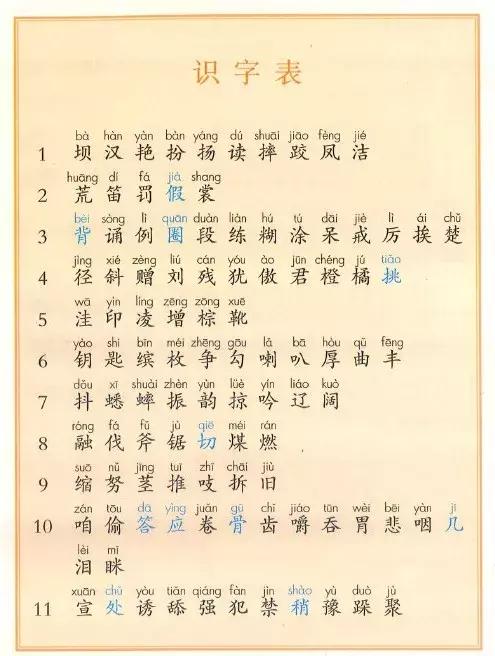 识字表
bà hàn yàn bàn yáng dú shuāi jiāo fèng jié
1 坝 汉 艳 扮 扬 读 摔 跤 凤 洁
huāng dí fá jià shang
2 荒 笛 罚 假 裳
bèi sòng lì quān duàn liàn hú tú dāi jiè lì ái chǔ
3 背 诵 例 圈 段 练 糊 涂 呆 戒 厉 挨 楚
jìng xié zèng liú cán yóu ào jūn chéng jú tiāo
4 径 斜 赠 刘 残 犹 傲 君 橙 橘 挑
wā yìn líng zēng zōng xuē
5 洼 印 凌 增 棕 靴
yào shi bīn méi zhēng gōu lǎ bā hòu qǔ fēng
6 钥 匙 缤 枚 争 勾 喇 叭 厚 曲 丰
dǒu xī shuài zhèn yùn lüè yín liáo kuò
7 抖 蟋 蟀 振 韵 掠 吟 辽 阔
róng fá fǔ jù qiē méi rán
8 融 伐 斧 锯 切 煤 燃
suō nǔ jīng tuī zhī chāi jiù
9 缩 努 茎 推 吱 拆 旧
zán tōu dā yìng juǎn gǔ chǐ jiáo tūn wèi bēi yàn jī
10 咱 偷 答 应 卷 骨 齿 嚼 吞 胃 悲 咽 几
lèi mī
泪 眯
xuān chǔ yòu tiǎn qiáng fàn jìn shào yù duò jù
11 宣 处 诱 舔 强 犯 禁 稍 豫 跺 聚